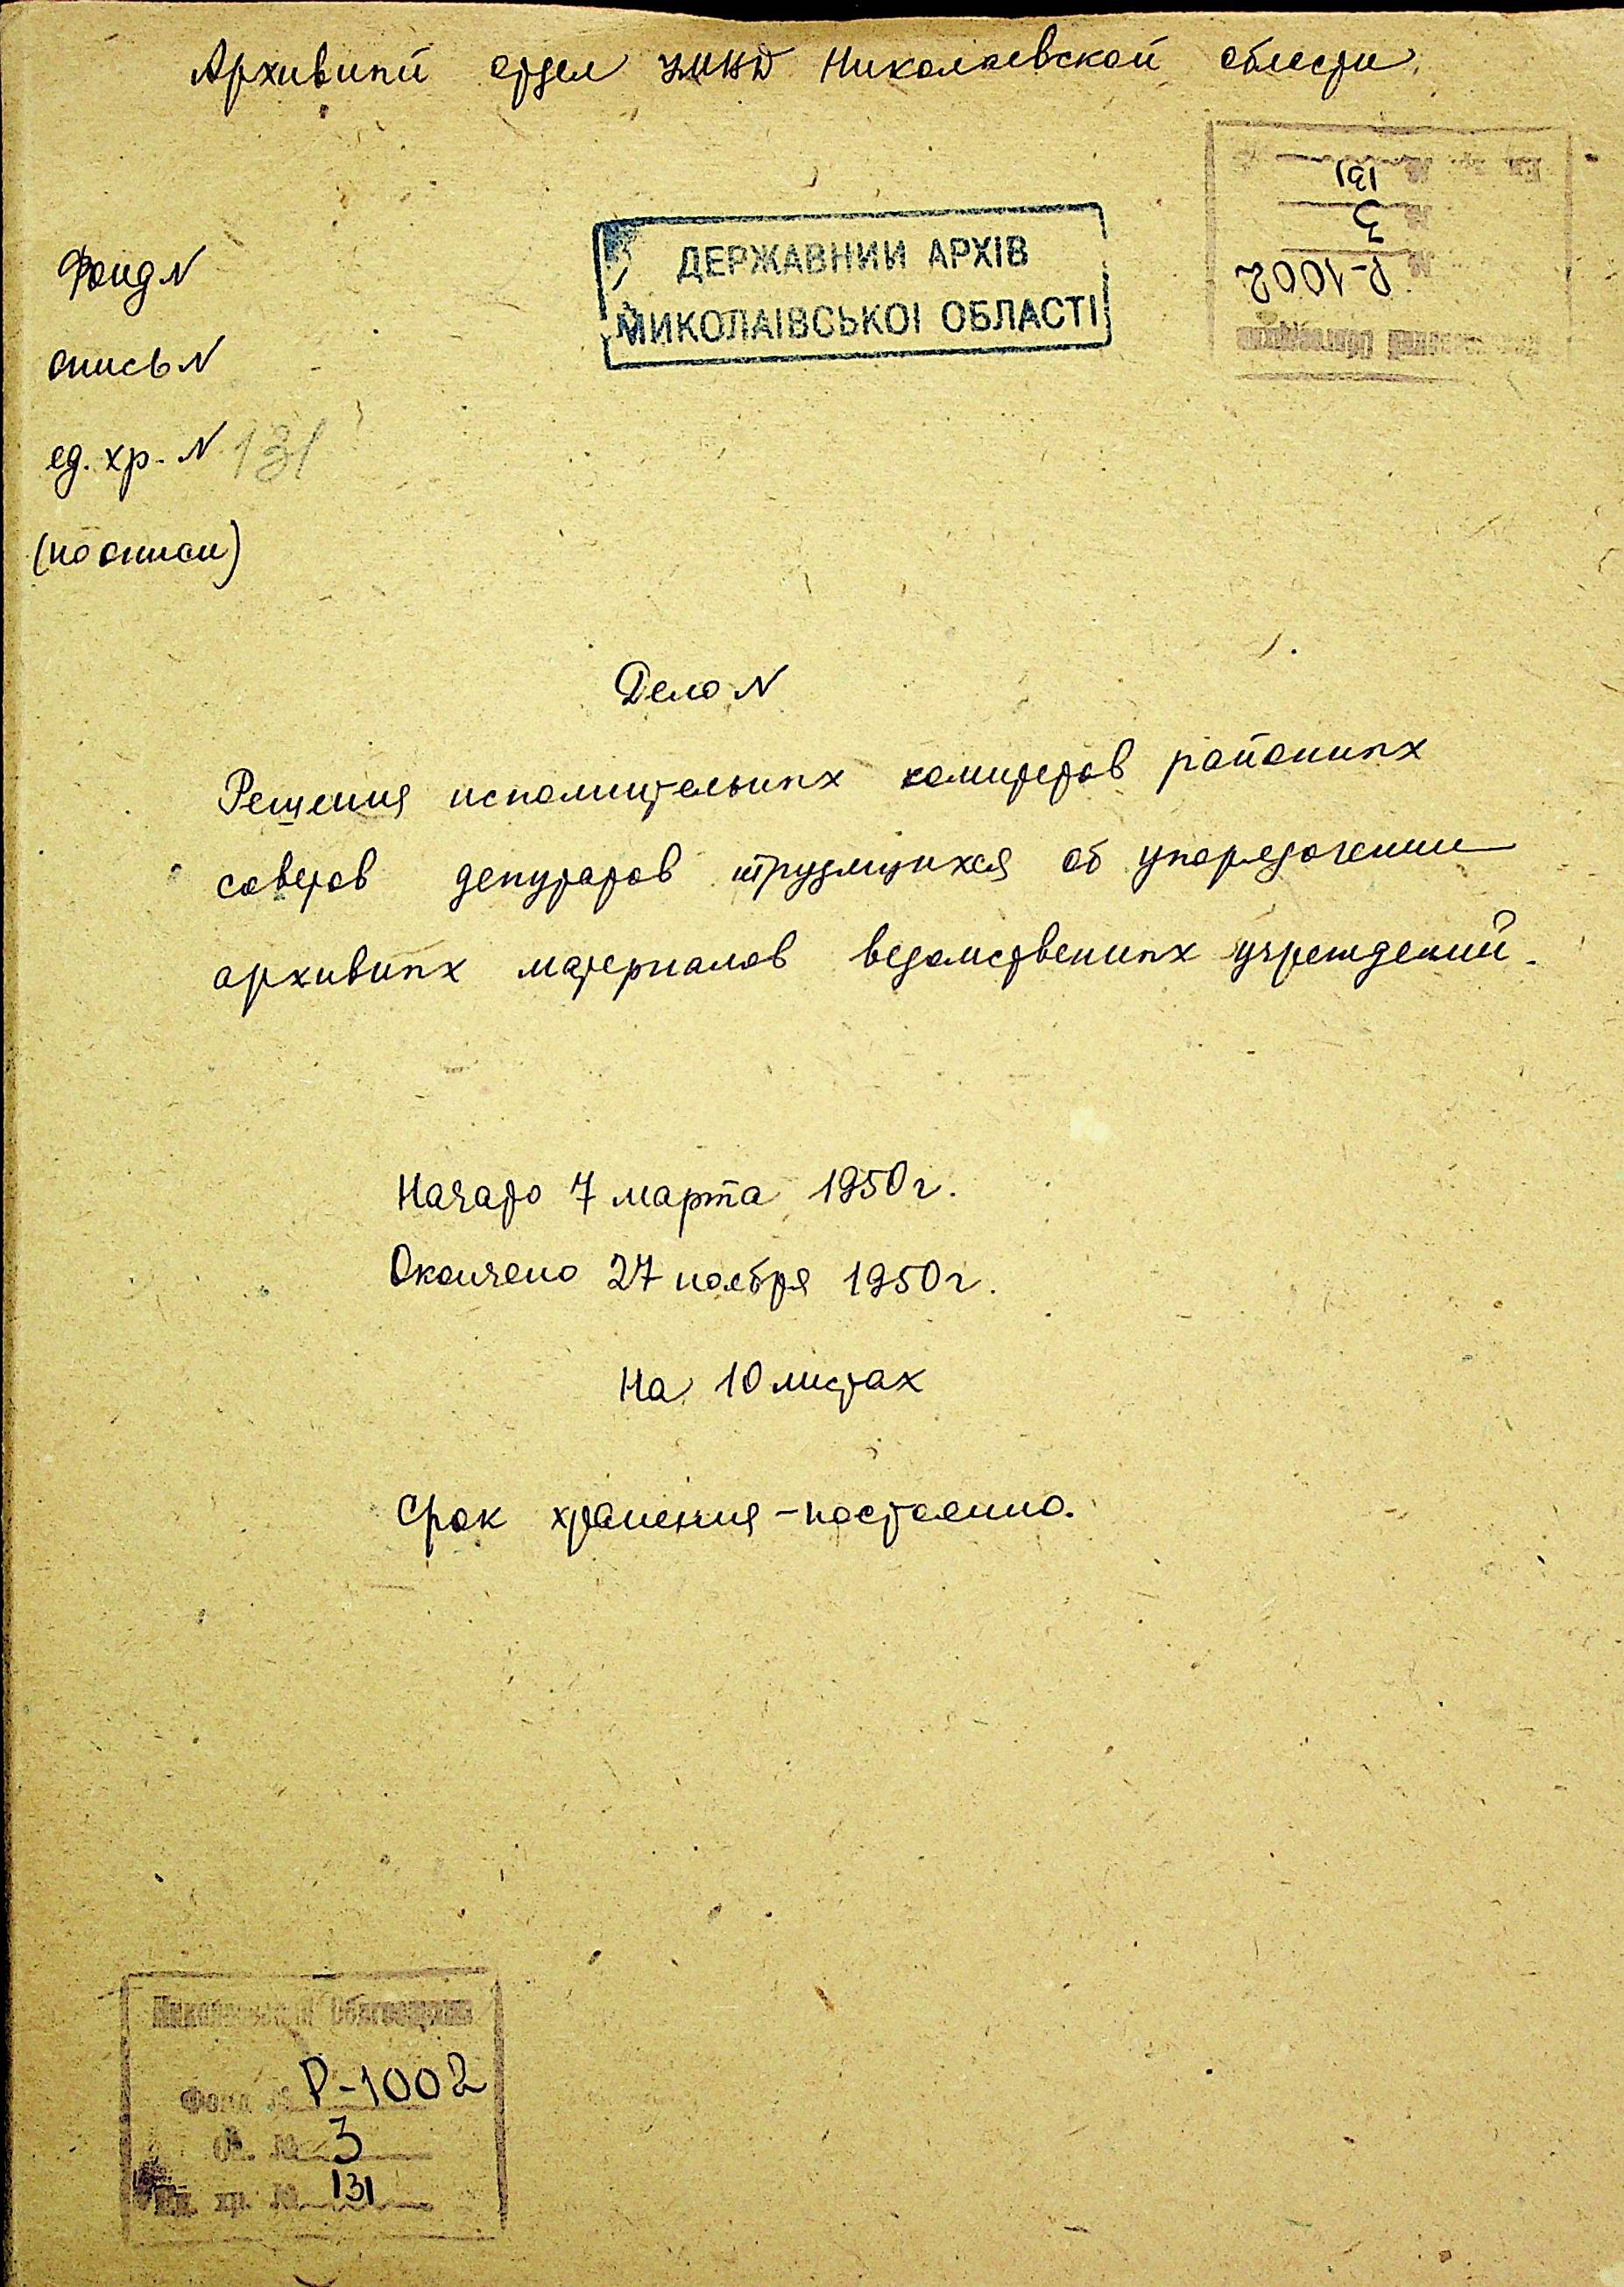 Архивный отдел УМВД Николаевской области.
ДЕРЖАВНИЙ АРХІВ
МИКОЛАЇВСЬКОЇ ОБЛАСТІ
№ 131
№ 3
№ Р-1002
Фонд N
опись N
ед. хр. N 131
(по описи)
Дело N
Решения исполнительных комитетов районных
советов депутатов трудящихся об упорядочении
архивных материалов ведомственных учреждений.
Начато 7 марта 1950 г.
Окончено 27 ноября 1950 г.
На 10 листах
Срок хранения - постоянно.
Николаевский Облгосархив
Фонд № Р-1002
Оп. № 3
Ед. хр. № 131